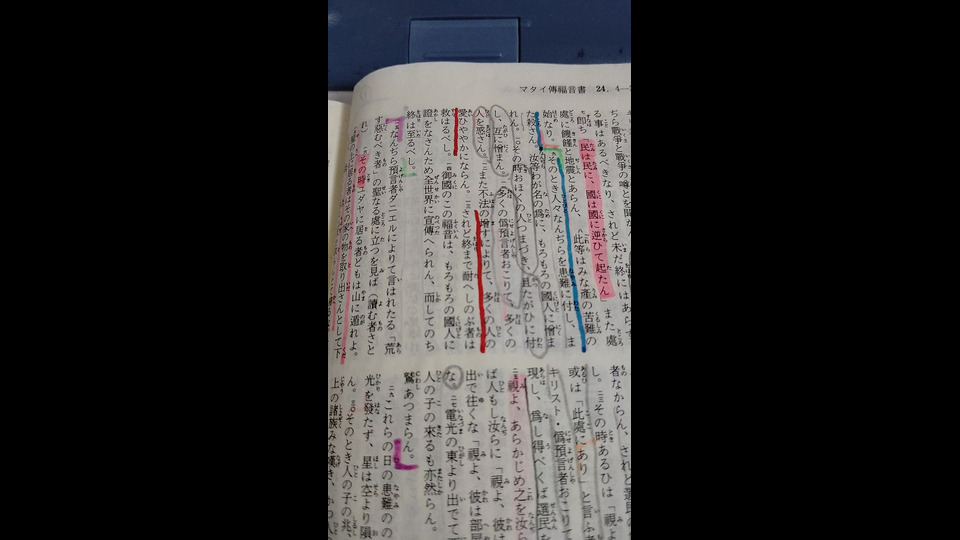 マタイ傳福音書 24, 4—
ぢら戰爭と戰爭の噂とを聞か
る事はあるべきなり、されど未だ終にはあら
「即ち「民は民に、國は國に逆ひて起たん」また處
處に饑饉と地震とあらん、此等はみな產の苦難の
始なり。そのとき人々なんぢらを患難に付し、ま
た殺さん、汝等わが名の爲に、もろもろの國人に憎ま
れん。一〇その時おほくの人つまづき、且たがひに付
し、互に憎まん。一一多くの僞預言者おこりて、多くの
人を惑さん。一二また不法の增すによりて、多くの人の
愛ひややかにならん。一三されど終まで耐へしのぶ者は
救はるべし。一四御國のこの福音は、もろもろの國人に
證をなさんため全世界に宣傳へられん、而してのち
終は至るべし。
一五なんぢら預言者ダニエルによりて言はれたる「荒
す惡むべき者」の聖なる處に立つを見ば（讀む者さと
れ）一六その時ユダヤに居る者どもは山に遁れよ。
者はその家の物を取り出さんとして下
者なからん、されど選民の
し。二三その時あるひは「視よ
或は「此處にあり」と言ふ者
キリスト・僞預言者おこりて
現し、爲し得べくば選民を
二五視よ、あらかじめ之を汝ら
ば人もし汝らに「視よ、彼は
出で往くな「視よ、彼は部屋
な。二七電光の東より出でて
人の子の來るも亦然らん。
鷲あつまらん。
二九これらの日の患難のの
光を發たず、星は空より隕
ん。三〇そのとき人の子の兆、
上の諸族みな嘆き、かつ人